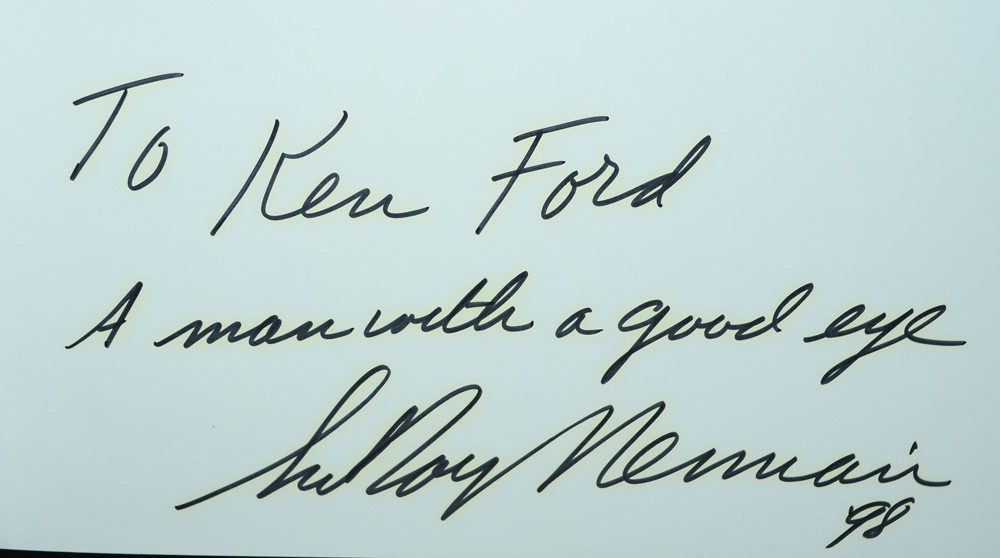 To Ken Ford
A man with a good eye
LeRoy Neiman
98